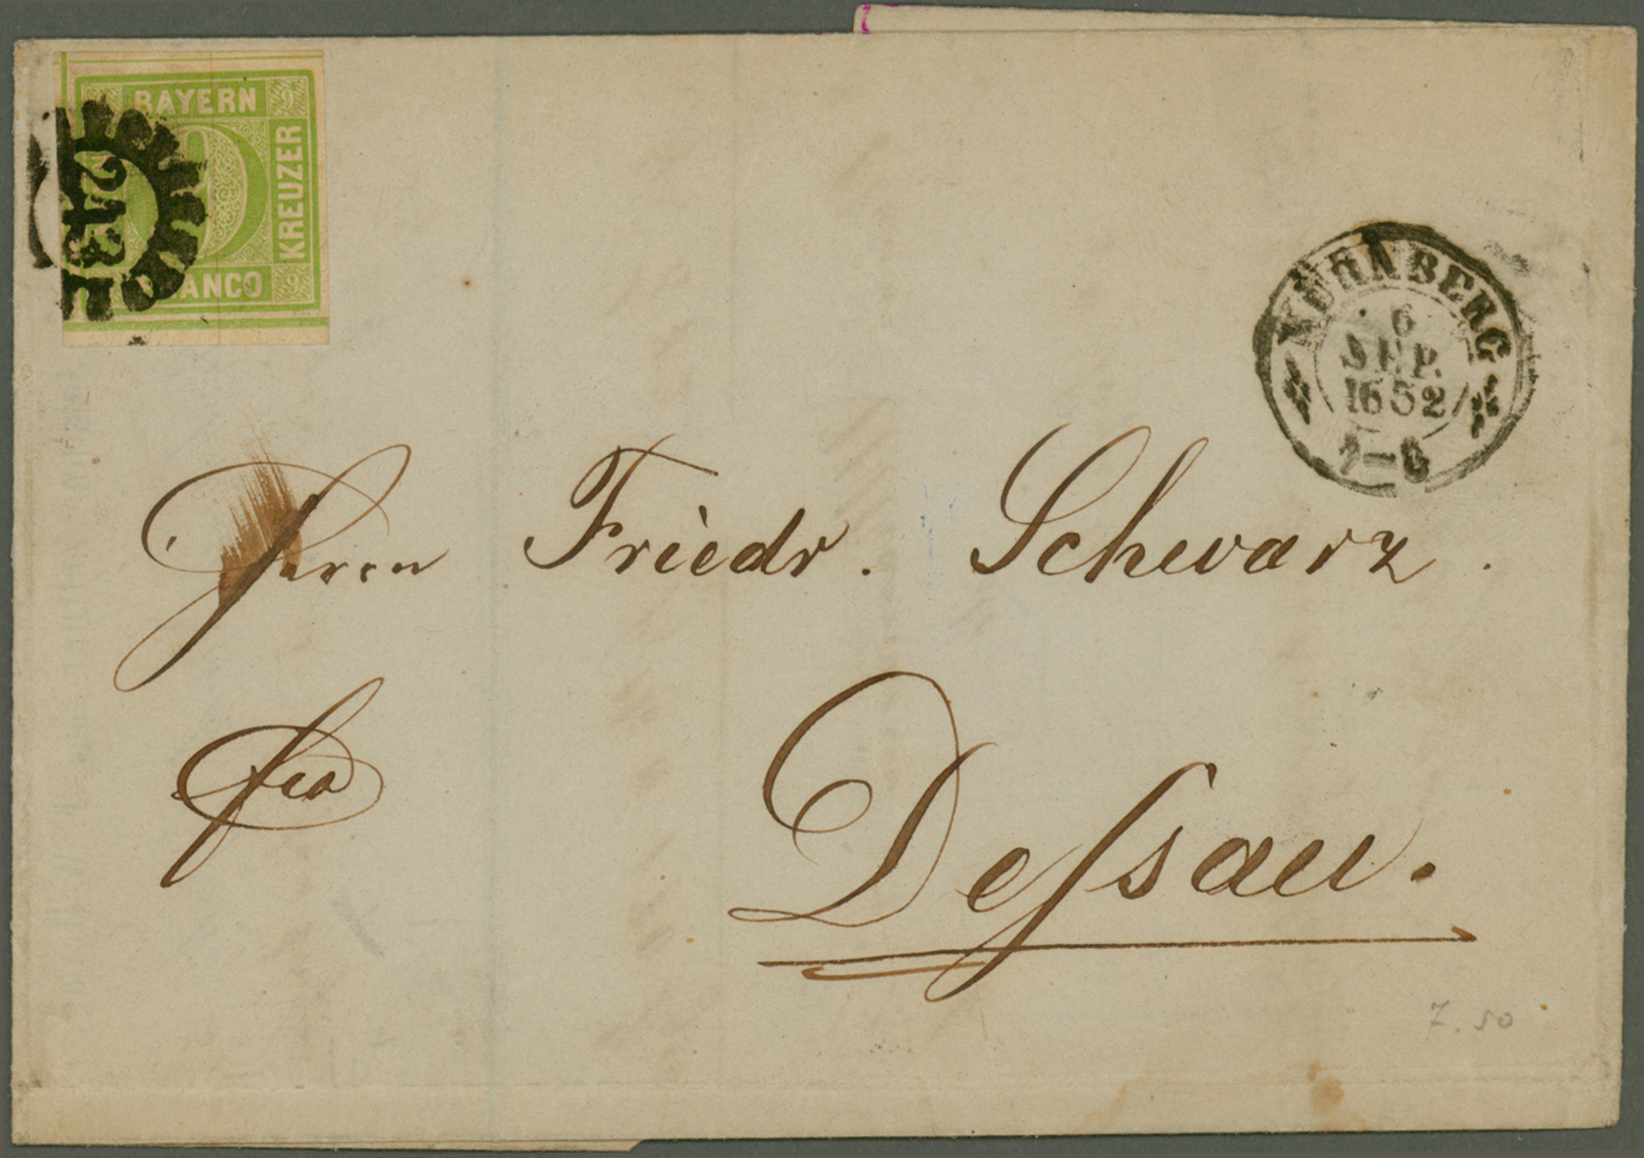 BAYERN
9
KREUZER
9
9
FRANCO
243
NÜRNBERG
6
SEP.
1852
Herrn Friedr. Schwarz.
fco
Deſsau.
7.50